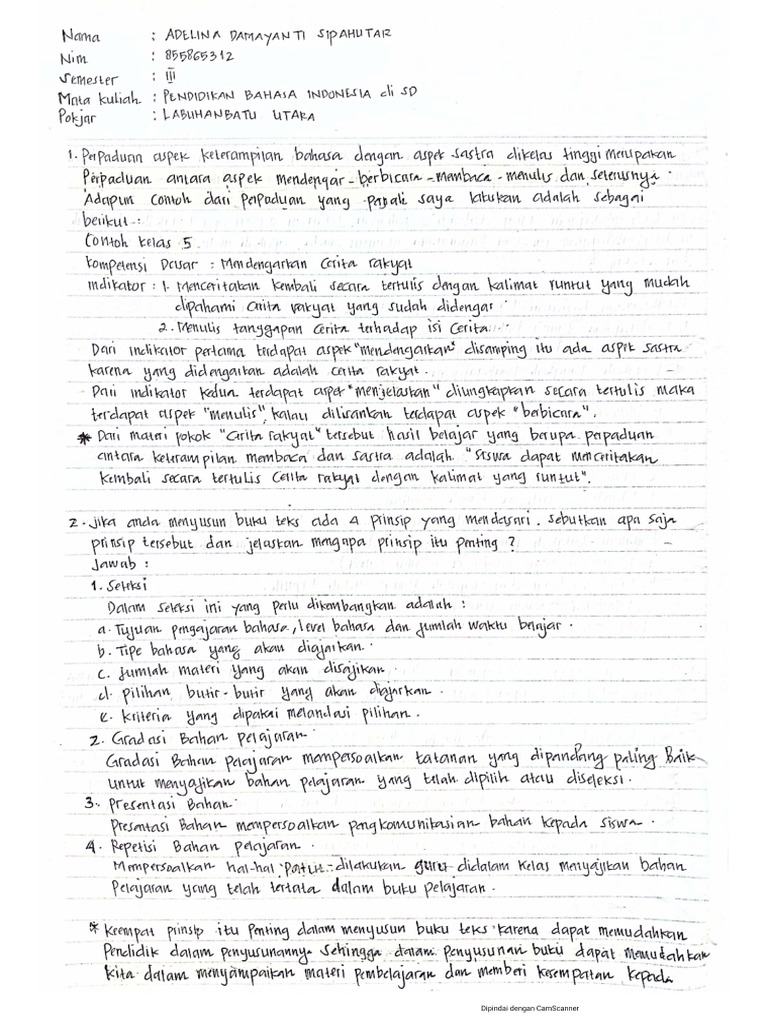 Nama : ADELINA DAMAYANTI SIPAHUTAR
Nim : 855865312
Semester : III
Mata kuliah : PENDIDIKAN BAHASA INDONESIA di SD
Pokjar : LABUHANBATU UTARA
1. Perpaduan aspek keterampilan bahasa dengan aspek sastra dikelas tinggi merupakan
Perpaduan antara aspek mendengar - berbicara - membaca - menulis dan seterusnya.
Adapun contoh dari perpaduan yang saya lakukan adalah sebagai
berikut :
Contoh kelas 5.
Kompetensi Dasar : Mendengarkan Cerita rakyat
Indikator : 1. Menceritakan kembali secara tertulis dengan kalimat runtut yang mudah
dipahami cerita rakyat yang sudah didengar.
2. Menulis tanggapan cerita terhadap isi cerita.
Dari indikator pertama terdapat aspek "mendengarkan" disamping itu ada aspek sastra
karena yang didengarkan adalah cerita rakyat.
Dari indikator kedua terdapat aspek "menjelaskan" diungkapkan secara tertulis maka
terdapat aspek "menulis", kalau dilisankan terdapat aspek "berbicara".
* Dari materi pokok "Cerita rakyat" tersebut hasil belajar yang berupa perpaduan
antara keterampilan membaca dan sastra adalah "siswa dapat menceritakan
kembali secara tertulis cerita rakyat dengan kalimat yang runtut".
2. Jika anda menyusun buku teks ada 4 prinsip yang mendasari. Sebutkan apa saja
prinsip tersebut dan jelaskan mengapa prinsip itu penting ?
Jawab :
1. Seleksi
Dalam seleksi ini yang perlu dikembangkan adalah :
a. Tujuan pengajaran bahasa, level bahasa dan jumlah waktu belajar.
b. Tipe bahasa yang akan diajarkan.
c. Jumlah materi yang akan disajikan.
d. pilihan butir-butir yang akan diajarkan.
e. kriteria yang dipakai melandasi pilihan.
2. Gradasi Bahan pelajaran
Gradasi Bahan pelajaran mempersoalkan tatanan yang dipandang paling Baik
untuk menyajikan bahan pelajaran yang telah dipilih atau diseleksi.
3. Presentasi Bahan
Presentasi Bahan mempersoalkan pengkomunikasian bahan kepada siswa.
4. Repetisi Bahan pelajaran.
Mempersoalkan hal-hal Patut dilakukan guru didalam kelas menyajikan bahan
Pelajaran yang telah tertata dalam buku pelajaran.
* Keempat prinsip itu Penting dalam menyusun buku teks karena dapat memudahkan
Pendidik dalam penyusunannya sehingga dalam penyusunan buku dapat memudahkan
kita dalam menyampaikan materi pembelajaran dan memberi kesempatan kepada
Dipindai dengan CamScanner